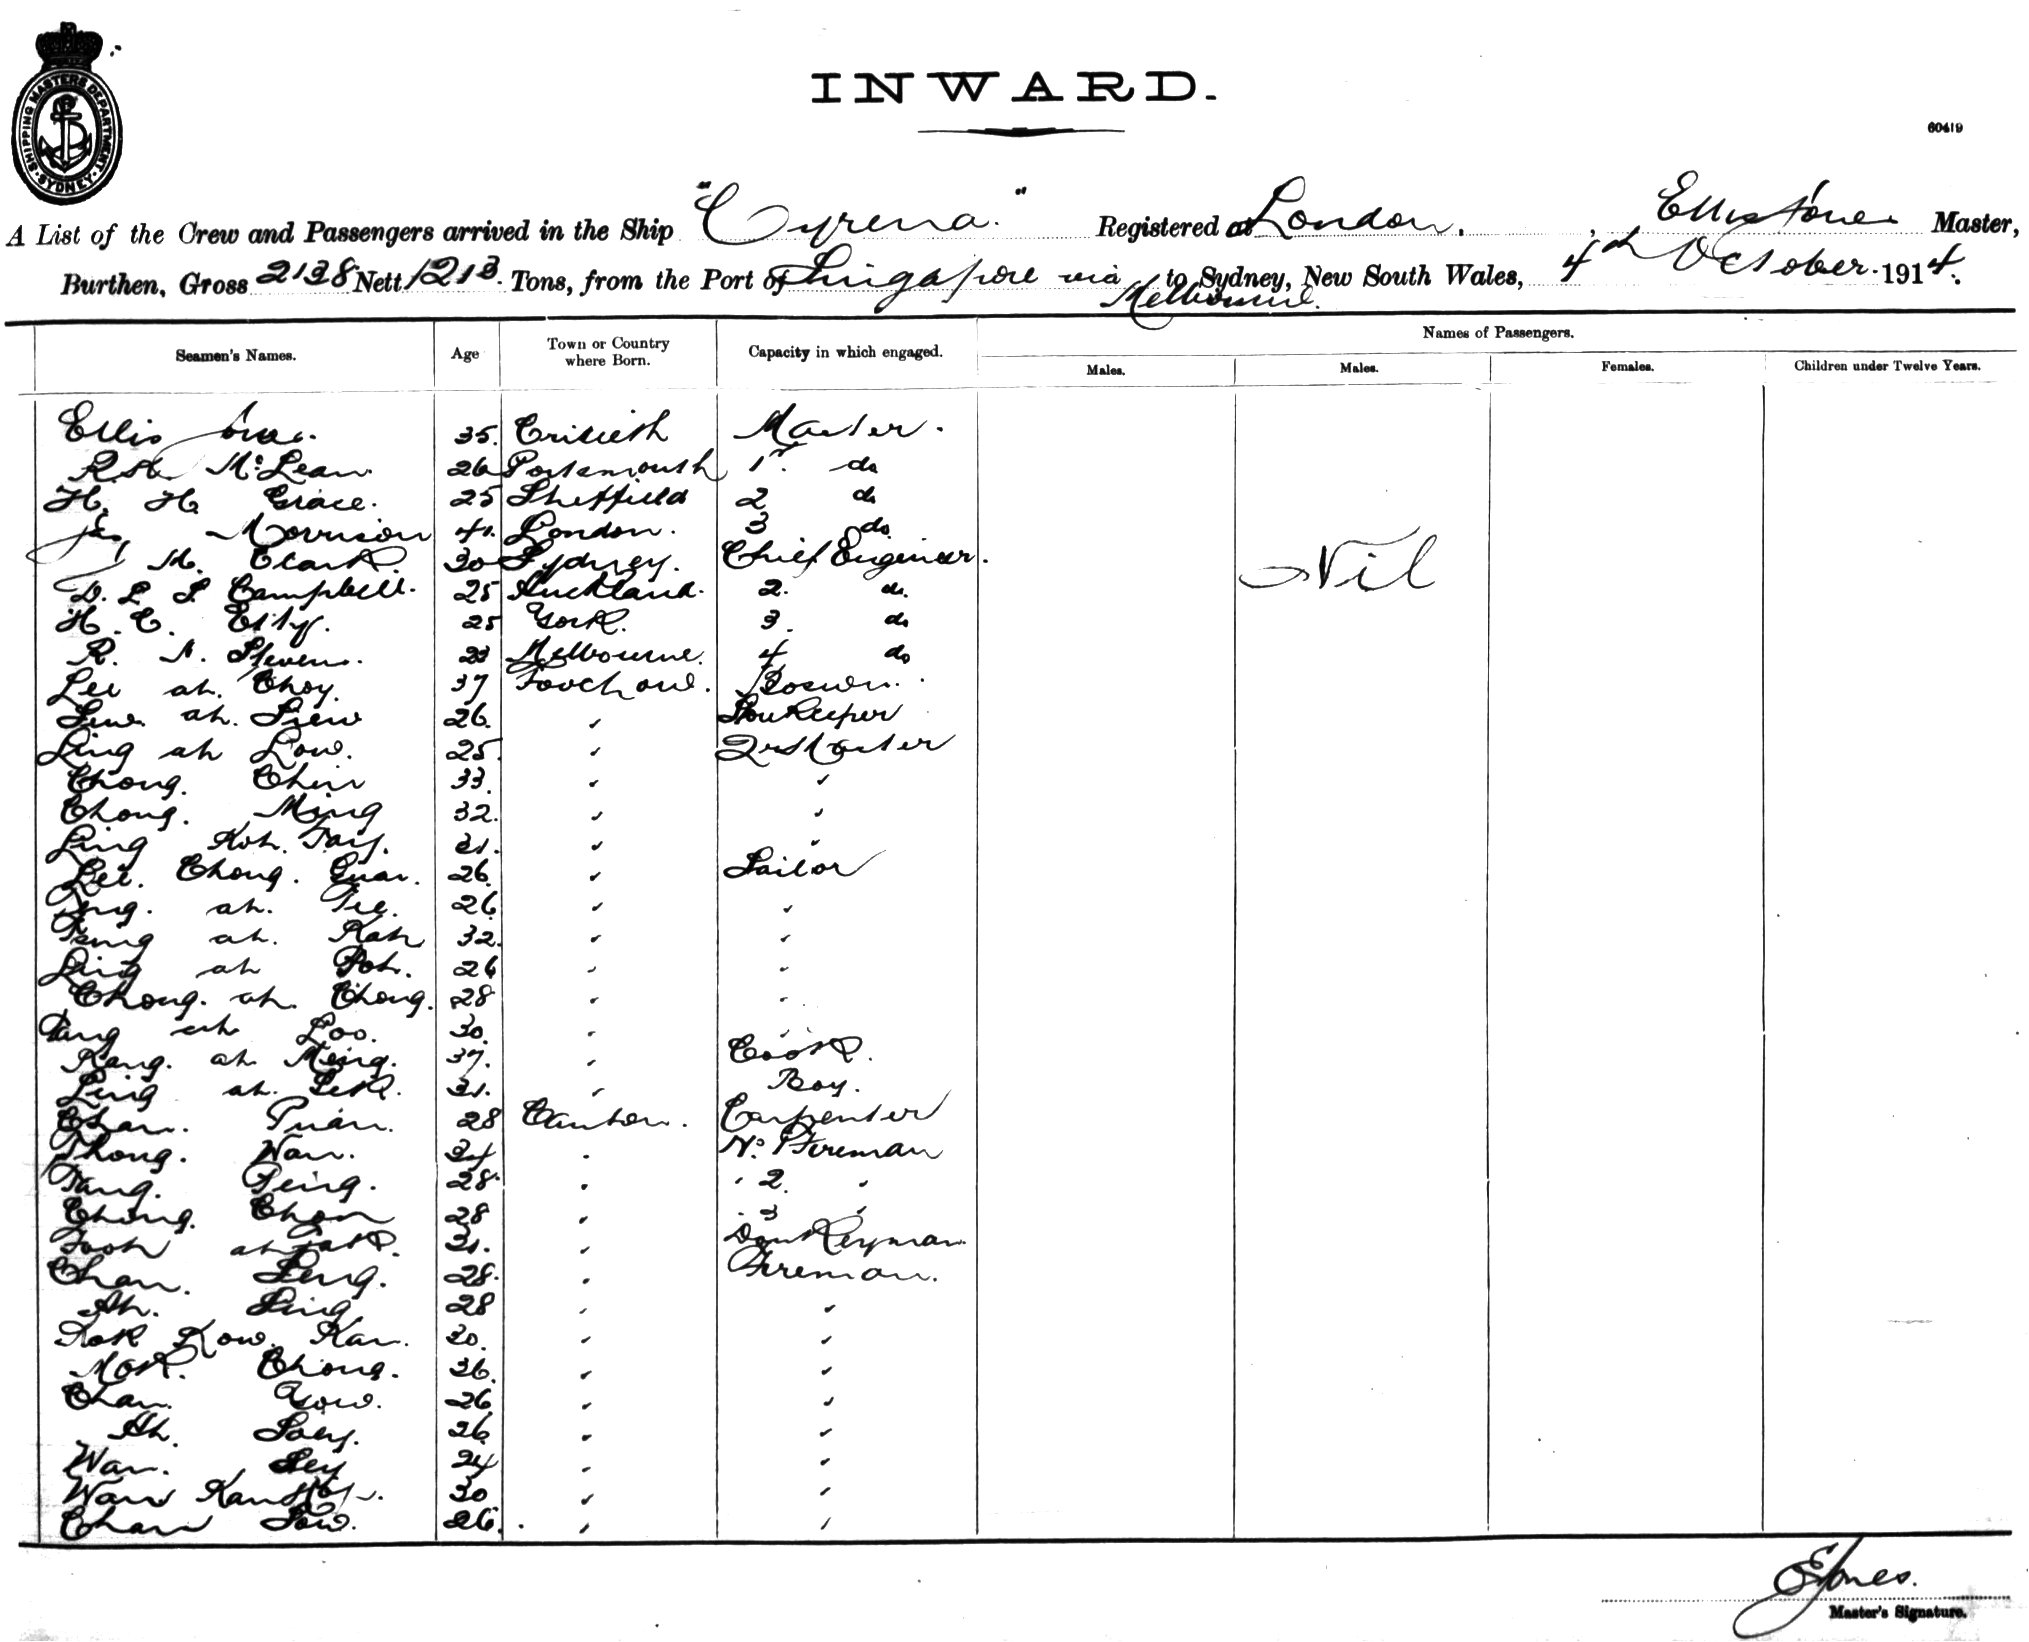 SHIPPING MASTERS DEPARTMENT · SYDNEY ·
INWARD.
60419
A List of the Crew and Passengers arrived in the Ship "Cyrena." Registered at London, Ellis Jones Master,
Burthen, Gross 2138 Nett 1213. Tons, from the Port of Singapore via Melbourne to Sydney, New South Wales, 4th October 1914.
Seamen's Names. Age Town or Country where Born. Capacity in which engaged. Names of Passengers.
Males. Males. Females. Children under Twelve Years.
Ellis Jones. 35. Criccieth Master.
McLean 26 Portsmouth 1st do
H. H. Grace. 25 Sheffield 2 do
Jas Morrison 41. London. 3 do
Clark. 30 Sydney. Chief Engineer.
Nil
D. L. S. Campbell. 25 Auckland. 2. do.
H. C. 25 York. 3. do
R. N. Stevens. 23 Melbourne. 4 do
Lee ah. Choy. 37 Foochow. Boswn.
Liew ah. Siew 26. " Storekeeper
Ling ah Low. 25. " Qrs Master
Chong. Chin 33. " "
Chong. Ming 32. " "
Ling Koh. Tay. 31. " "
Lee. Chong. Guan. 26. " Sailor
ah. 26 " "
ah. Kah 32. " "
Ling ah Poh. 26 " "
Chong. ah. Chong. 28 " "
Pang ah Loo. 30. " "
Kang. ah Ming. 37. " Cook.
Ling ah. Sek. 31. " Boy.
Chan. 28 Canton. Carpenter
Thong. Wan. 34 " No. 1 Fireman
Tang. Peing. 28. " " 2. "
Chong. Chon 28 " " 3 "
Fook ah 31. " Donkeyman
Chan. Leng. 28. " Fireman.
Ah. Ping 28 " "
Kow. Kan. 30. " "
Mok. Chong. 36. " "
Chan. Yow. 26. " "
Ah. Soey. 26. " "
Wan. Sey 24 " "
Wan Kan 30 " "
Chan Sow. 26. " "
E Jones.
Master's Signature.